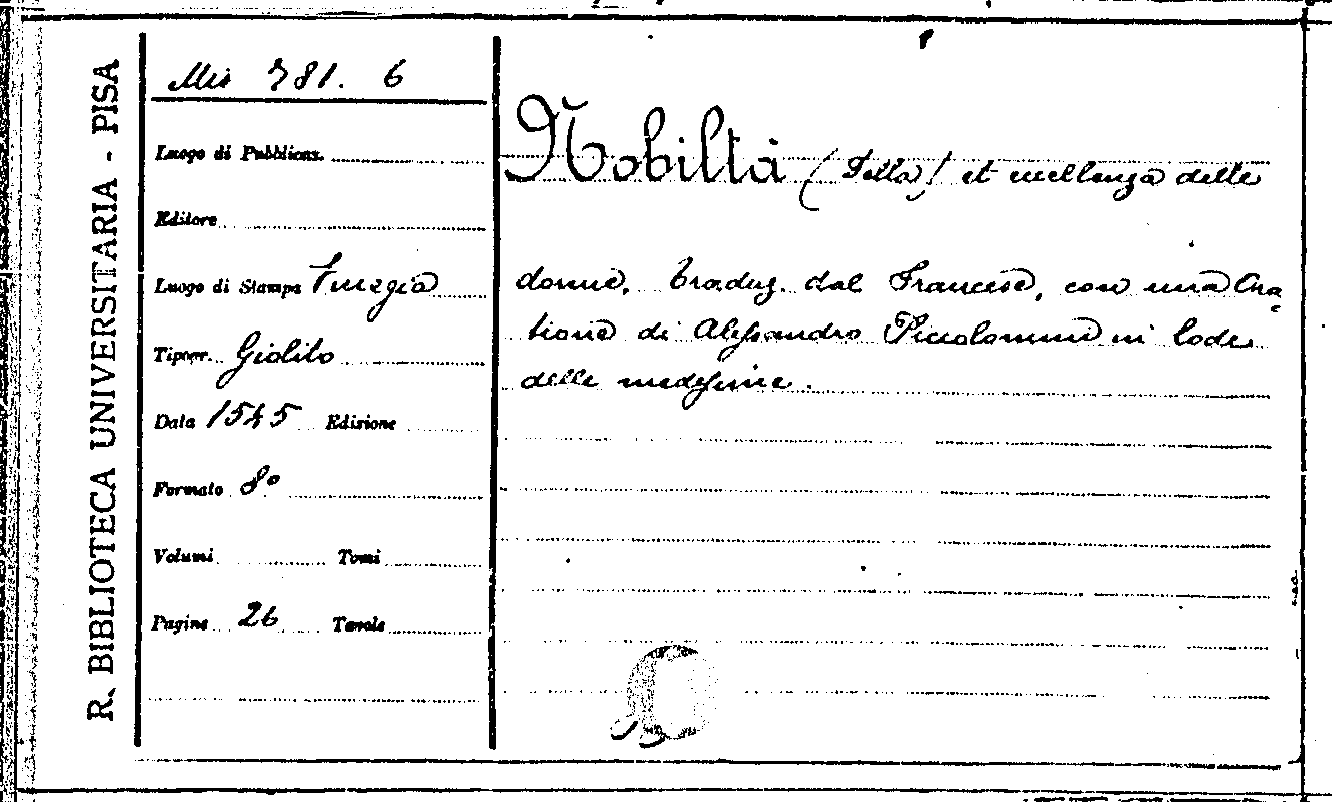 R. BIBLIOTECA UNIVERSITARIA - PISA
Mis 781. 6
Luogo di Pubblicaz.
Editore
Luogo di Stampa Vinegia
Tipogr. Giolito
Data 1545 Edizione
Formato 8°
Volumi Tomi
Pagine 26 Tavole
Nobiltà (Della) et eccellenza delle
donne, traduz. dal Francese, con una Ora-
tione di Alessandro Piccolomini in lode
delle medesime.